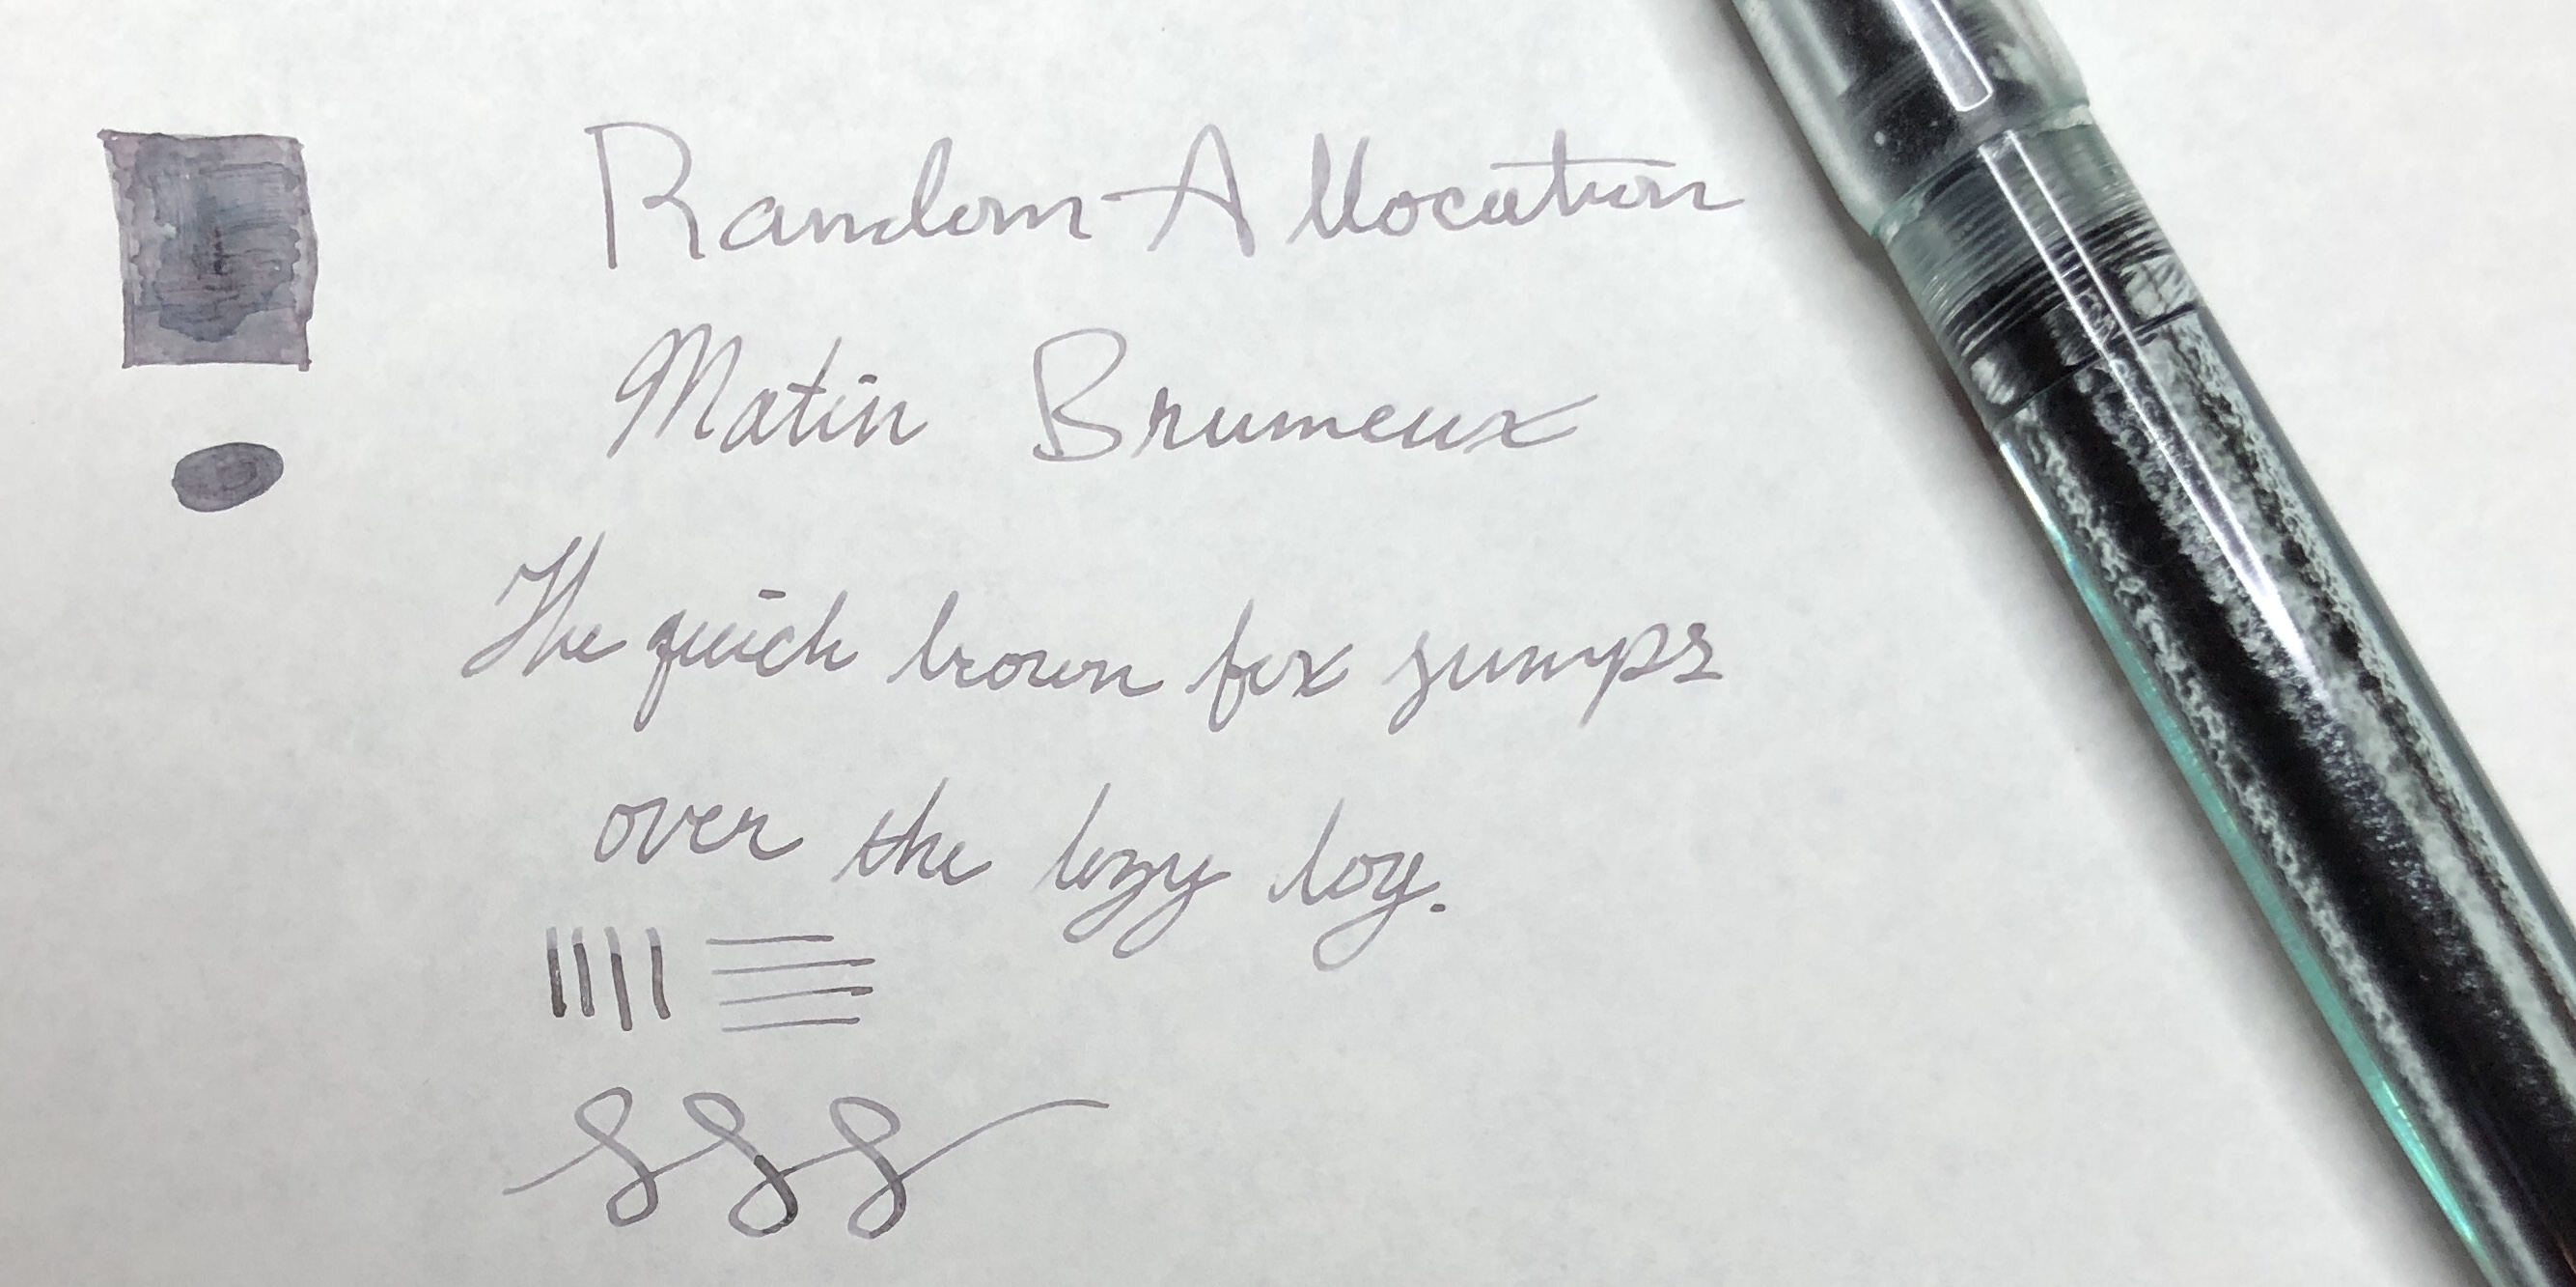 Random Allocation
Matin Brumeux
The quick brown fox jumps
over the lazy log.